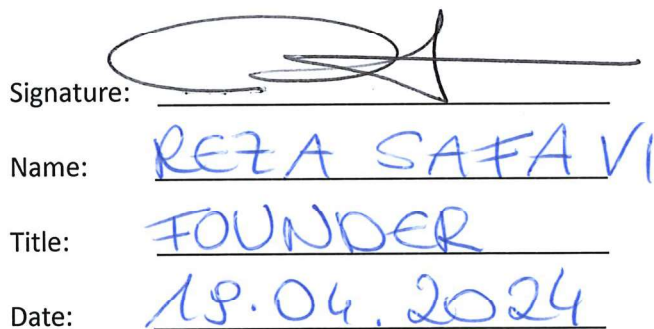 Signature:
Name: REZA SAFAVI
Title: FOUNDER
Date: 19.04.2024